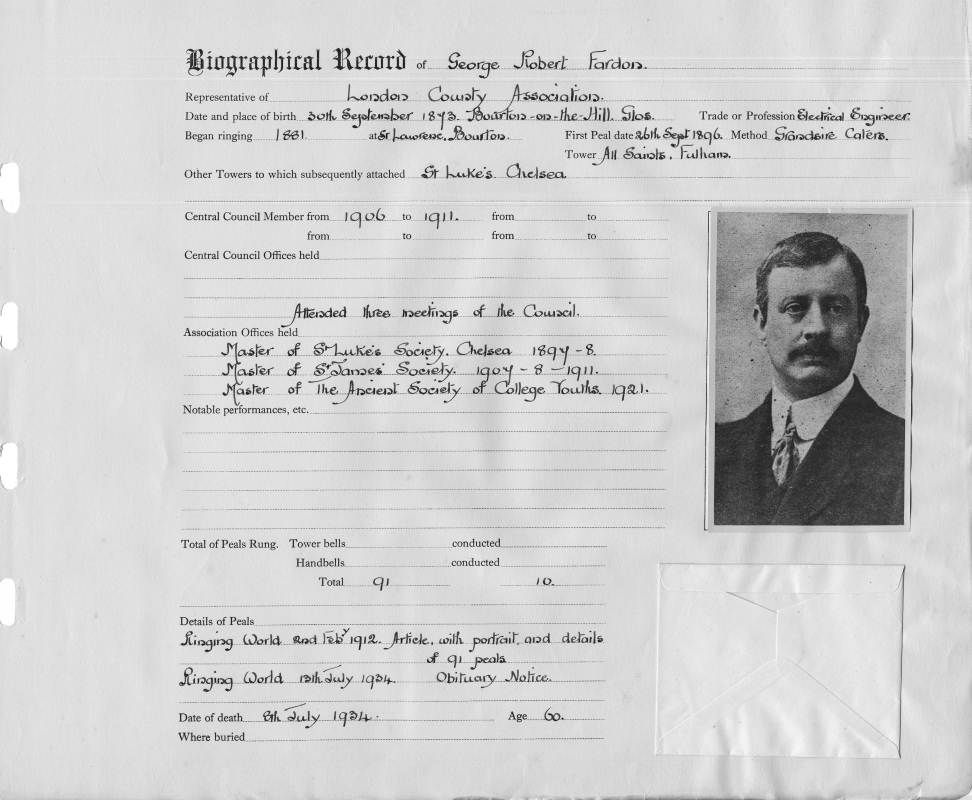 Biographical Record of George Robert Fardon.
Representative of London County Association.
Date and place of birth 30th September 1873. Bourton-on-the-Hill. Glos. Trade or Profession Electrical Engineer.
Began ringing 1881. at St Lawrence, Bourton. First Peal date 26th Sept 1896. Method Grandsire Caters.
Tower All Saints, Fulham.
Other Towers to which subsequently attached St Luke's. Chelsea.
Central Council Member from 1906 to 1911. from to
from to from to
Central Council Offices held
Attended three meetings of the Council.
Association Offices held
Master of St Luke's Society. Chelsea 1897-8.
Master of St James' Society. 1907-8-1911.
Master of The Ancient Society of College Youths. 1921.
Notable performances, etc.
Total of Peals Rung. Tower bells conducted
Handbells conducted
Total 91 10.
Details of Peals
Ringing World 2nd Feby 1912. Article, with portrait, and details
of 91 peals
Ringing World 13th July 1934. Obituary Notice.
Date of death 8th July 1934. Age 60.
Where buried